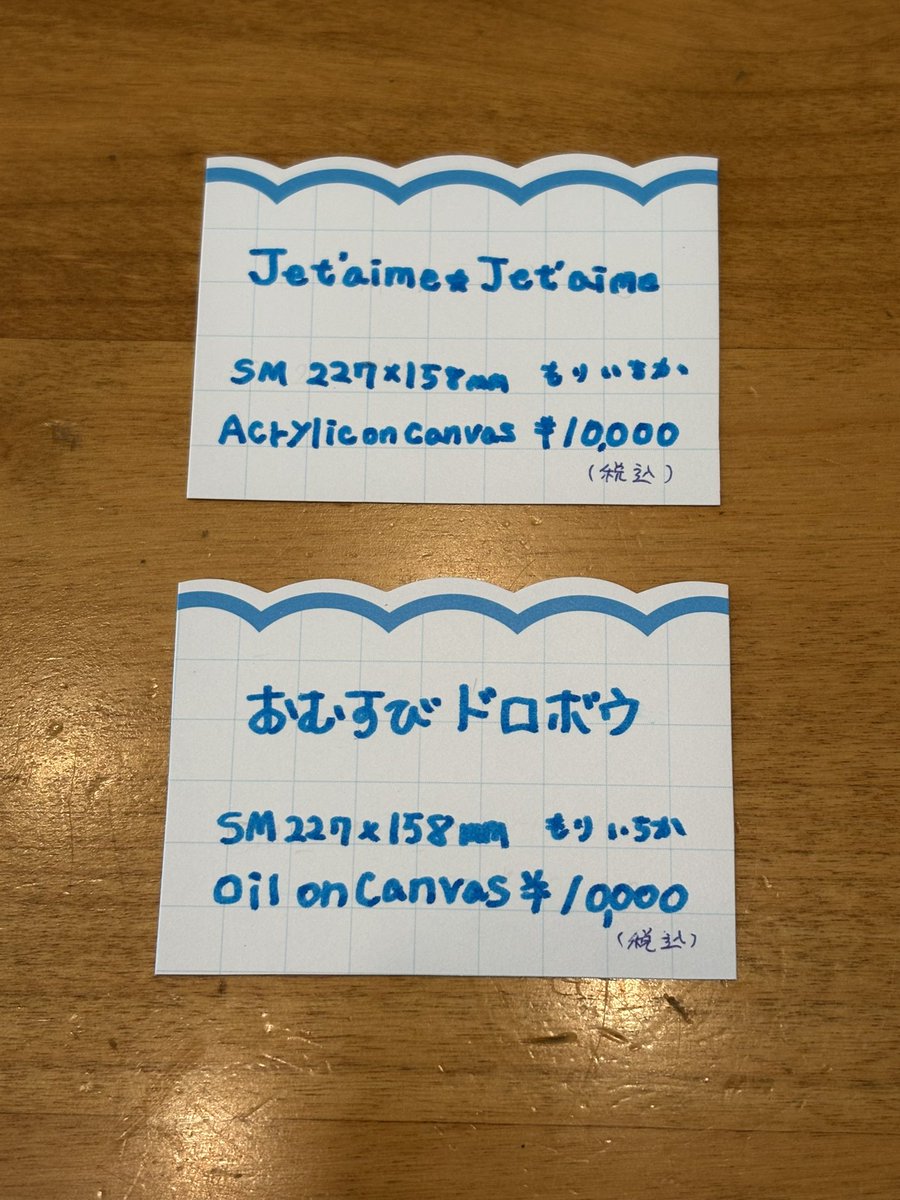 Jet'aime★Jet'aime
SM 227×158mm もりいちか
Acrylic on canvas ¥10,000
(税込)
おむすびドロボウ
SM 227×158mm もりいちか
Oil on Canvas ¥10,000
(税込)